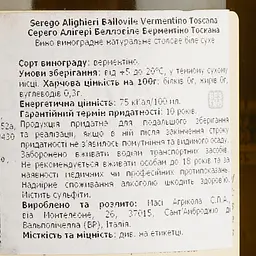 Serego Alighieri Bellovile Vermentino Toscana
Серего Алігері Белловіле Верментіно Тоскана
Вино виноградне натуральне столове біле сухе
Сорт винограду: верментіно.
Умови зберігання: від +5 до 20°С, у темному сухому
місці. Харчова цінність на 100г: білків 0г, жирів 0г,
вуглеводів 0,3г.
Енергетична цінність: 75 кКал/100 мл.
Гарантійний термін придатності: 10 років.
Продукція придатна для подальшого зберігання
та реалізації, якщо в ній після закінчення строку
придатності не з'явилось помутніння та видимого осаду.
Заборонено вживати водіям транспортних засобів.
Не рекомендується вживати особам до 18 років та за
наявності медичних або професійних протипоказань.
Надмірне споживання алкоголю шкодить здоров'ю.
Містить сульфіти.
Вироблено та розлито: Масі Агрікола С.П.А.,
віа Монтелеоне, 26, 37015, Сант'Амброджіо ді
Вальполічелла (ВР), Італія.
Місткість та міцність: див. на етикетці.